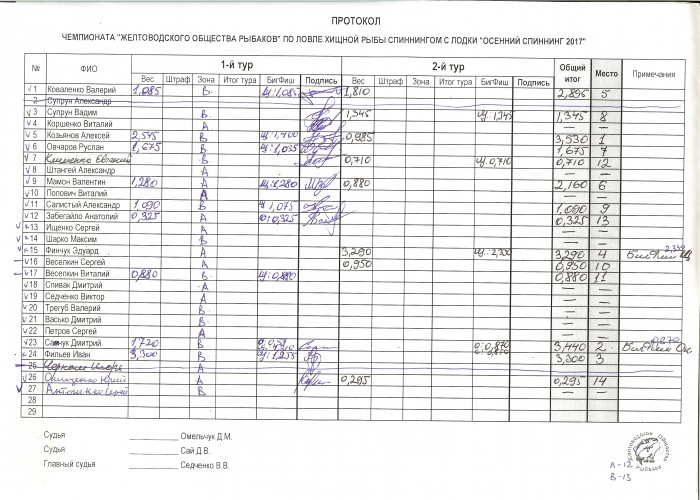 ПРОТОКОЛ
ЧЕМПИОНАТА "ЖЕЛТОВОДСКОГО ОБЩЕСТВА РЫБАКОВ" ПО ЛОВЛЕ ХИЩНОЙ РЫБЫ СПИННИНГОМ С ЛОДКИ "ОСЕННИЙ СПИННИНГ 2017"
№ ФИО 1-й тур 2-й тур Общий итог Место Примечания
Вес Штраф Зона Итог тура БигФиш Подпись Вес Штраф Зона Итог тура БигФиш Подпись
1 Коваленко Валерий 1,085 В щ:1,085 1,810 2,895 5
2 Супрун Александр
3 Супрун Вадим В 1,345 щ:1,345 1,345 8
4 Коршенко Виталий А — —
5 Козьянов Алексей 2,545 В щ:1,400 0,985 3,530 1
6 Овчаров Руслан 1,675 А щ:1,035 1,675 7
7 В 0,710 щ:0,710 0,710 12
8 Штангей Александр А — —
9 Мамон Валентин 1,280 А щ:1,280 0,880 2,160 6
10 Попович Виталий А — —
11 Салистый Александр 1,090 В 1,075 1,090 9
12 Забегайло Анатолий 0,325 А о:0,325 0,325 13
13 Ищенко Сергей А — —
14 Шарко Максим В — —
15 Финчук Эдуард А 3,290 3,290 4
16 Веселкин Сергей А 0,950 0,950 10
17 Веселкин Виталий 0,880 В щ:0,880 0,880 11
18 Спивак Дмитрий А — —
19 Седченко Виктор А — —
20 Трегуб Валерий В — —
21 Васько Дмитрий В — —
22 Петров Сергей А — —
23 Дмитрий 1,720 В о:0,870 3,440 2
24 Фильев Иван 3,300 В щ:1,255 3,300 3
25 А
26 Юрий А 0,295 0,295 14
27 В
28
29
Судья Омельчук Д.М.
Судья Сай Д.В.
Главный судья Седченко В.В.
А-12
В-13